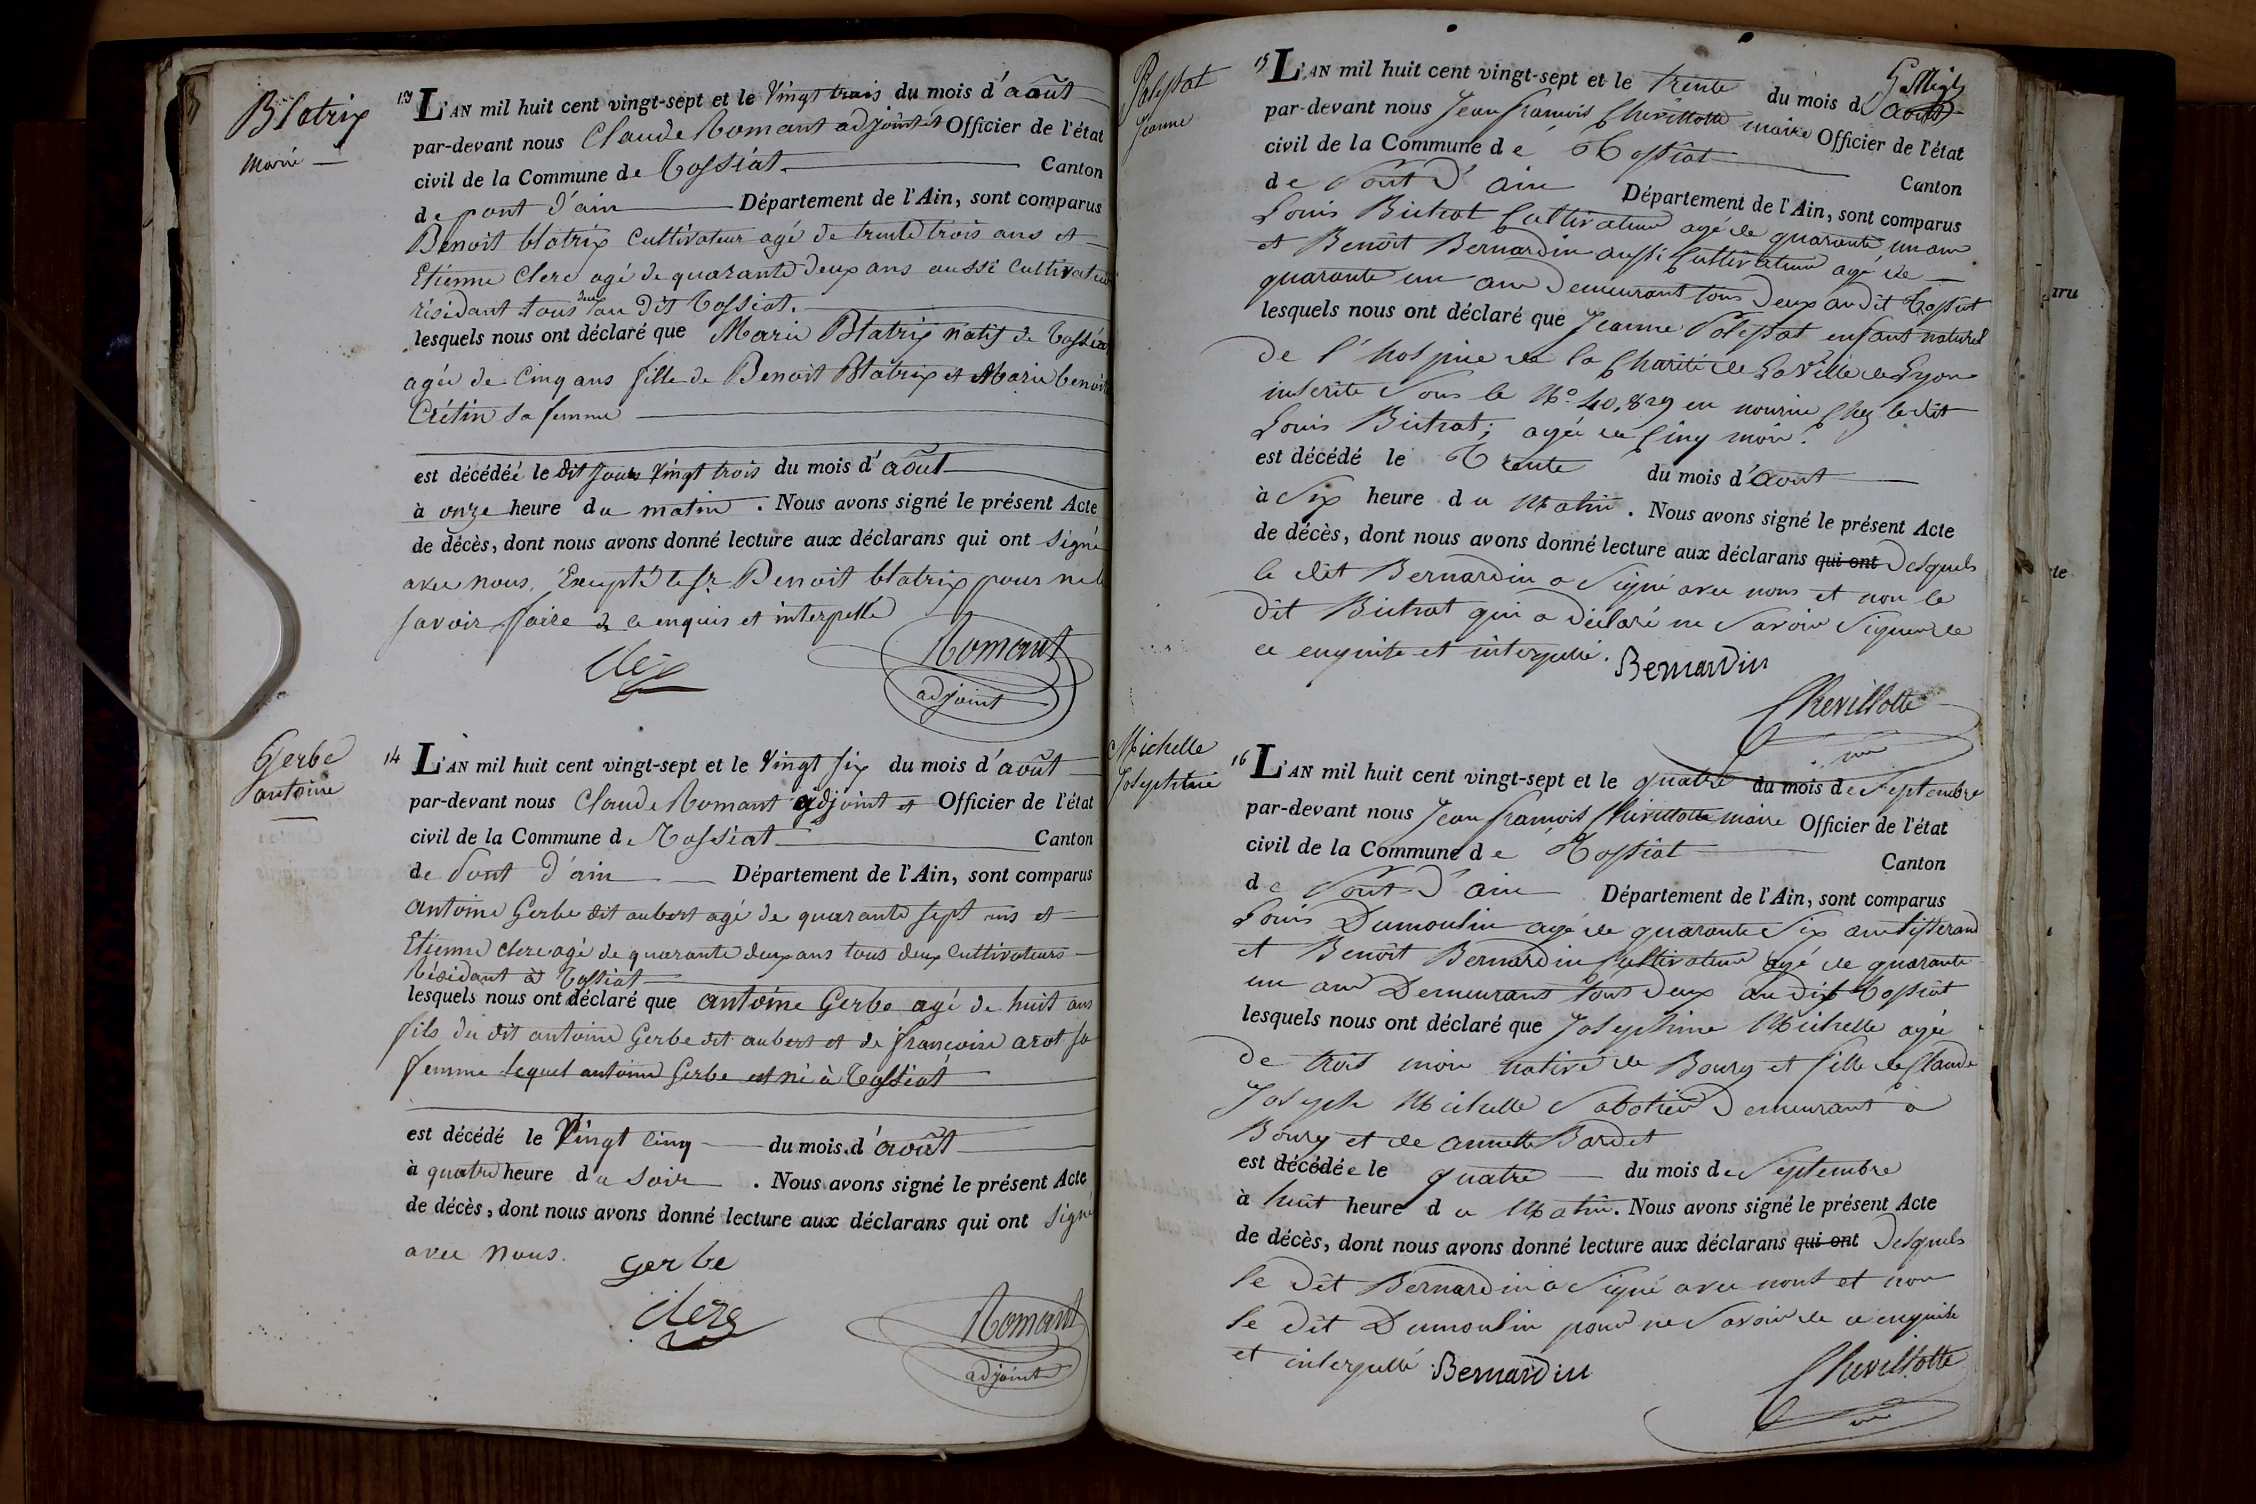 Blatrix
Marie
13 L'AN mil huit cent vingt-sept et le Vingt trois du mois d'août
par-devant nous Claude Romant adjoint et Officier de l'état
civil de la Commune de Tossiat Canton
de pont d'ain Département de l'Ain, sont comparus
Benoit blatrix cultivateur agé de trente trois ans et
Etienne Clerc agé de quarante deux ans aussi Cultivateur
résidant tous deux au dit Tossiat.
lesquels nous ont déclaré que Marie Blatrix natif de Tossiat
agée de Cinq ans fille de Benoit Blatrix et Marie benoite
Crétin sa femme
est décédée le dit jour Vingt trois du mois d'août
à onze heure du matin . Nous avons signé le présent Acte
de décès, dont nous avons donné lecture aux déclarans qui ont signé
avec nous. Excepté le sr Benoit blatrix pour ne le
savoir faire de ce enquis et interpellé
Clerc Romant
adjoint
Gerbe
antoine
14 L'AN mil huit cent vingt-sept et le Vingt six du mois d'août
par-devant nous Claude Romant adjoint et Officier de l'état
civil de la Commune de Tossiat Canton
de Pont d'ain Département de l'Ain, sont comparus
antoine Gerbe dit aubert agé de quarante sept ans et
Etienne clerc agé de quarante deux ans tous deux Cultivateurs
Résidant à Tossiat
lesquels nous ont déclaré que antoine Gerbe agé de huit ans
fils du dit antoine Gerbe dit aubert et de françoise arot sa
femme lequel antoine Gerbe est né à Tossiat
est décédé le Vingt cinq du mois d'août
à quatre heure du soir . Nous avons signé le présent Acte
de décès, dont nous avons donné lecture aux déclarans qui ont Signé
avec nous. Gerbe
Clerc Romant
adjoint
Palessat
Jeanne
15 L'AN mil huit cent vingt-sept et le trente du mois d'aout
par-devant nous Jean françois Chevillotte maire Officier de l'état
civil de la Commune de Tossiat Canton
de Pont d'ain Département de l'Ain, sont comparus
Louis Bichat Cultivateur agé de quarante un an
et Benoît Bernardin aussi Cultivateur agé de
quarante un an Demeurant tous Deux au dit Tossiat
lesquels nous ont déclaré que Jeanne Palessat enfant naturel
de l'hospice de la Charité de La Ville de Lyon
inscrite Sous le No. 40,829 en nourrice Chez le dit
Louis Bichat; agée de Cinq mois.
est décédé le Trente du mois d'aout
à Six heure du Matin . Nous avons signé le présent Acte
de décès, dont nous avons donné lecture aux déclarans qui ont Desquels
le dit Bernardin a Signé avec nous et non le
dit Bichat qui a Déclaré ne Savoir Signer de
ce enquite et interpellé. Bernardin
Chevillotte
Michelle
Josephine
16 L'AN mil huit cent vingt-sept et le quatre du mois de Septembre
par-devant nous Jean françois Chevillotte maire Officier de l'état
civil de la Commune de Tossiat Canton
de Pont d'ain Département de l'Ain, sont comparus
Louis Dumoulin agé de quarante Six ans tisserand
et Benoît Bernardin Cultivateur agé de quarante
un ans Demeurans tous Deux au dit Tossiat
lesquels nous ont déclaré que Josephine Michelle agée
de trois mois native de Bourg et fille de Claude
Joseph Michelle Sabotier Demeurant à
Bourg et de annette Bardet
est décédée le quatre du mois de Septembre
à huit heure du Matin. Nous avons signé le présent Acte
de décès, dont nous avons donné lecture aux déclarans qui ont Desquels
le Dit Bernardin a Signé avec nous et non
le Dit Dumoulin pour ne Savoir de ce enquite
et interpellé. Bernardin Chevillotte